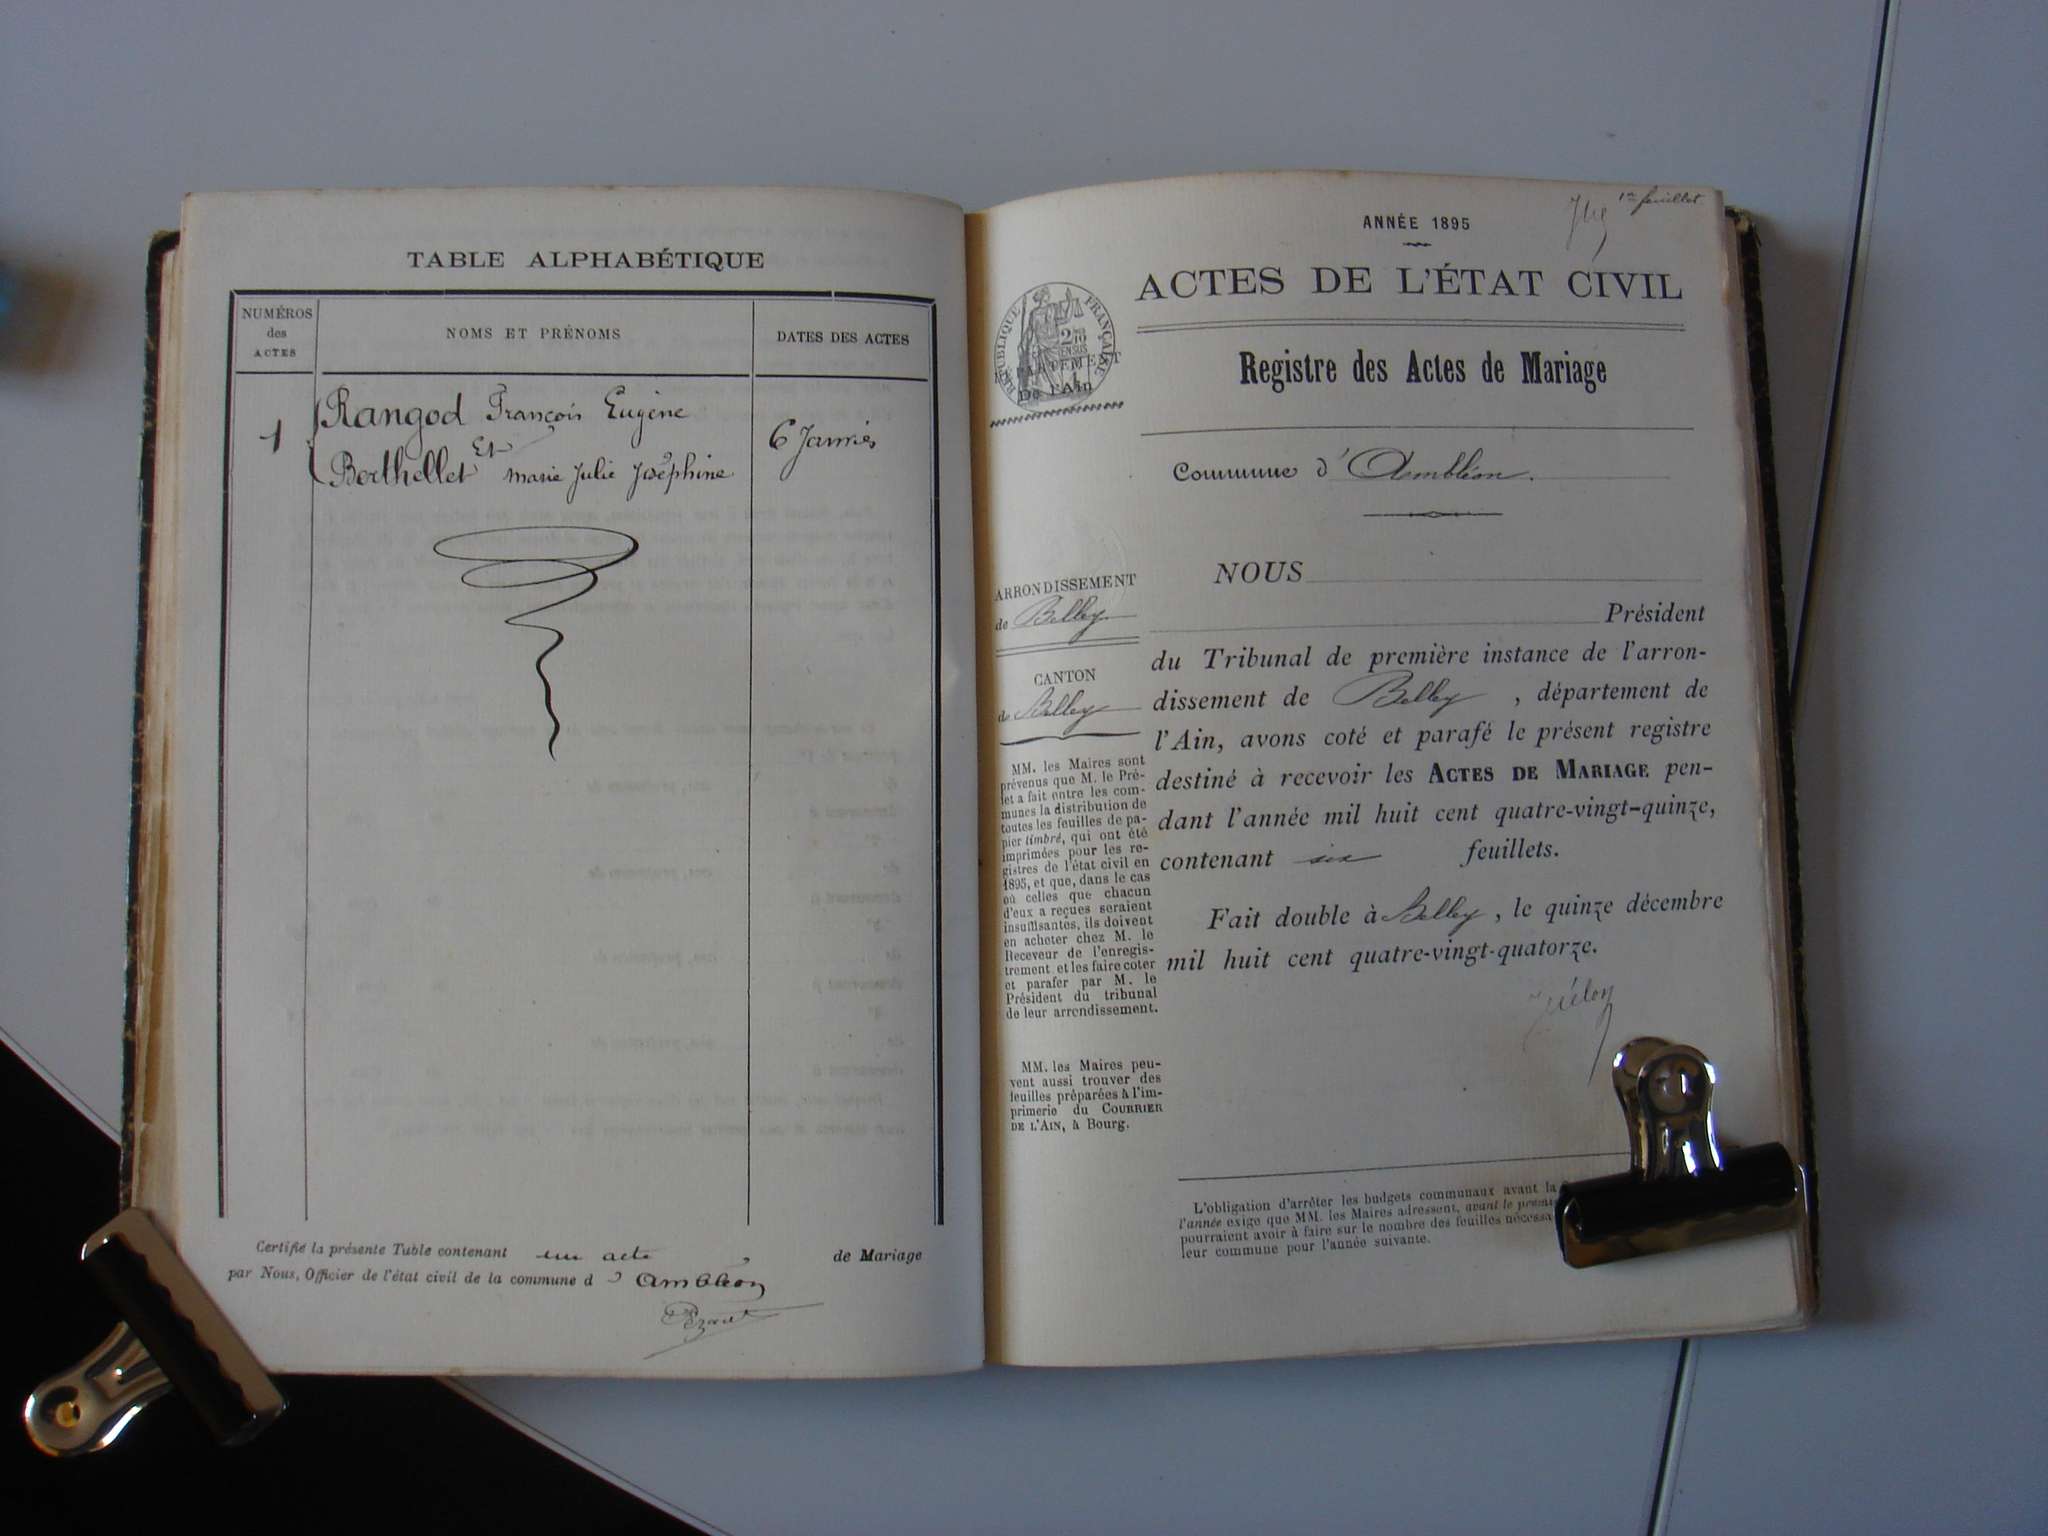 TABLE ALPHABÉTIQUE
NUMÉROS
des
ACTES
NOMS ET PRÉNOMS
DATES DES ACTES
1
Rangod François Eugène
Et
Berthellet marie Julie Joséphine
6 Janvier
Certifié la présente Table contenant un acte de Mariage
par Nous, Officier de l'état civil de la commune d' Ambléon
1er feuillet
ANNÉE 1895
ACTES DE L'ÉTAT CIVIL
RÉPUBLIQUE FRANÇAISE
2/10
EN SUS
DÉPARTEMENT
De l'Ain
Registre des Actes de Mariage
Commune d'Ambléon.
ARRONDISSEMENT
de Belley
CANTON
de Belley
MM. les Maires sont
prévenus que M. le Pré-
fet a fait entre les com-
munes la distribution de
toutes les feuilles de pa-
pier timbré, qui ont été
imprimées pour les re-
gistres de l'état civil en
1895, et que, dans le cas
où celles que chacun
d'eux a reçues seraient
insuffisantes, ils doivent
en acheter chez M. le
Receveur de l'enregis-
trement et les faire coter
et parafer par M. le
Président du tribunal
de leur arrondissement.
MM. les Maires peu-
vent aussi trouver des
feuilles préparées à l'im-
primerie du COURRIER
DE L'AIN, à Bourg.
NOUS
Président
du Tribunal de première instance de l'arron-
dissement de Belley, département de
l'Ain, avons coté et parafé le présent registre
destiné à recevoir les ACTES DE MARIAGE pen-
dant l'année mil huit cent quatre-vingt-quinze,
contenant six feuillets.
Fait double à Belley, le quinze décembre
mil huit cent quatre-vingt-quatorze.
L'obligation d'arrêter les budgets communaux avant la
l'année exige que MM. les Maires adressent, avant le
pourraient avoir à faire sur le nombre des feuilles
leur commune pour l'année suivante.